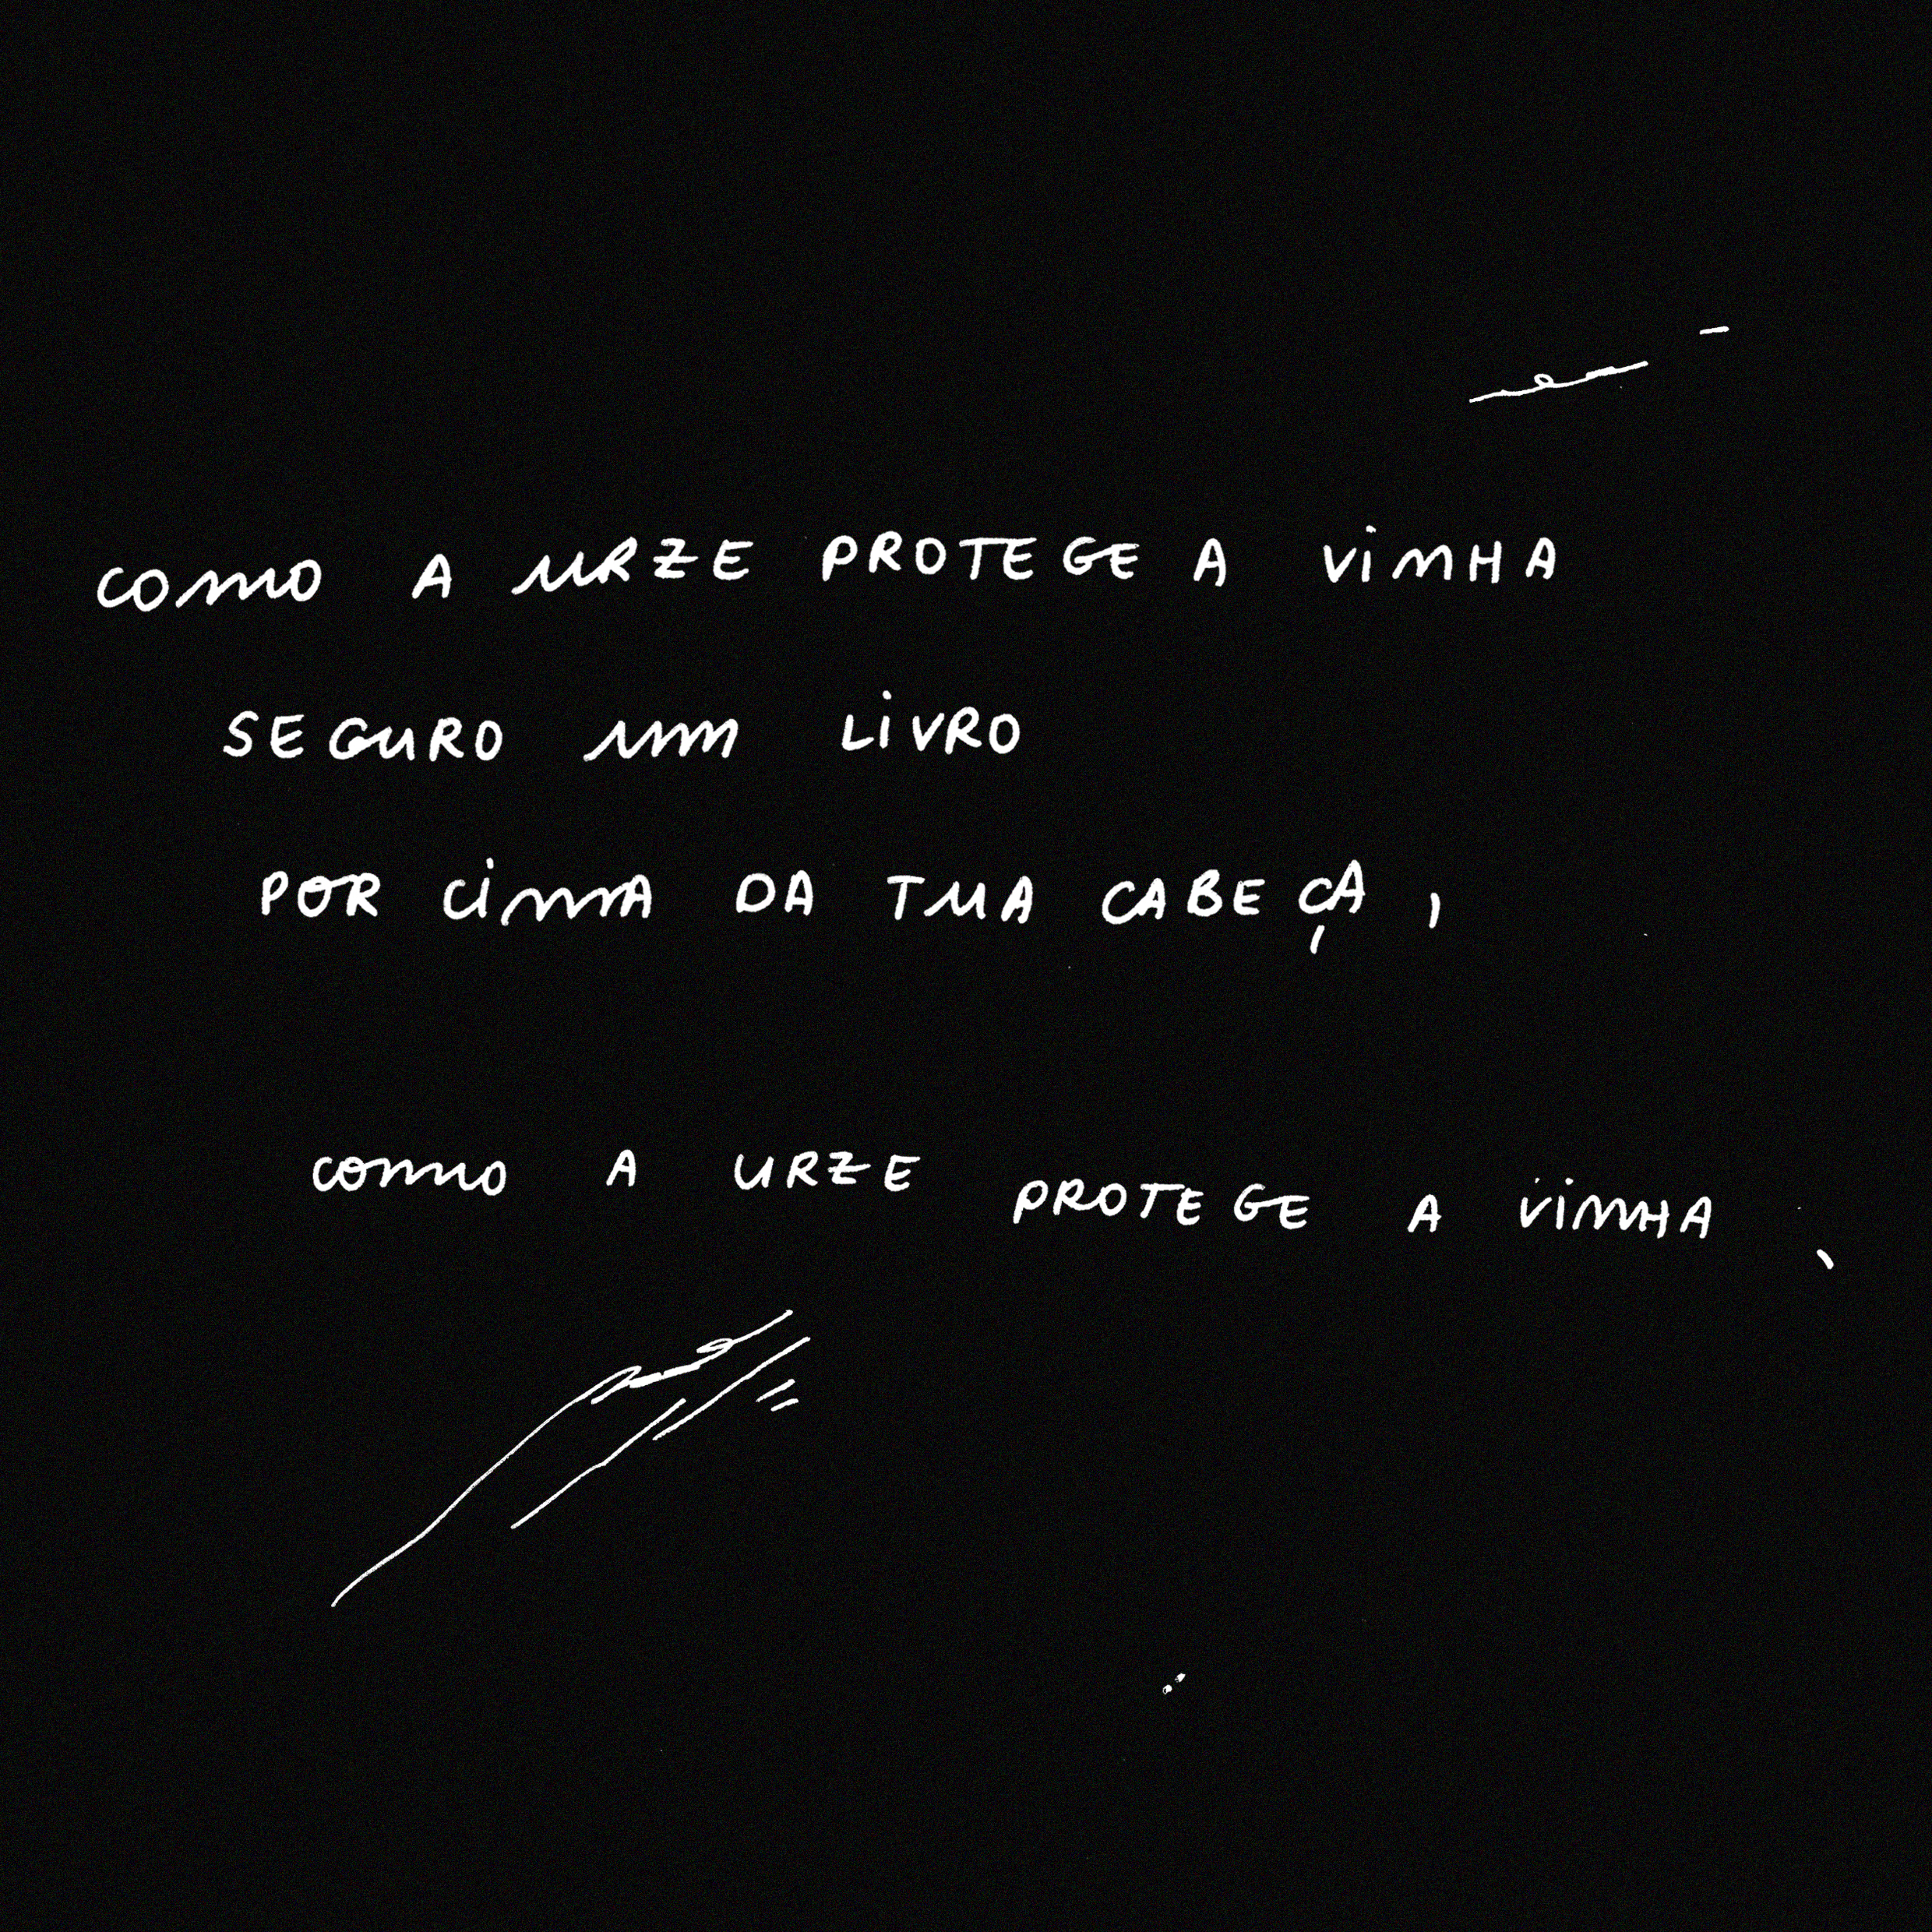 COMO A URZE PROTEGE A VINHA
SEGURO UM LIVRO
POR CIMA DA TUA CABEÇA,
COMO A URZE PROTEGE A VINHA,